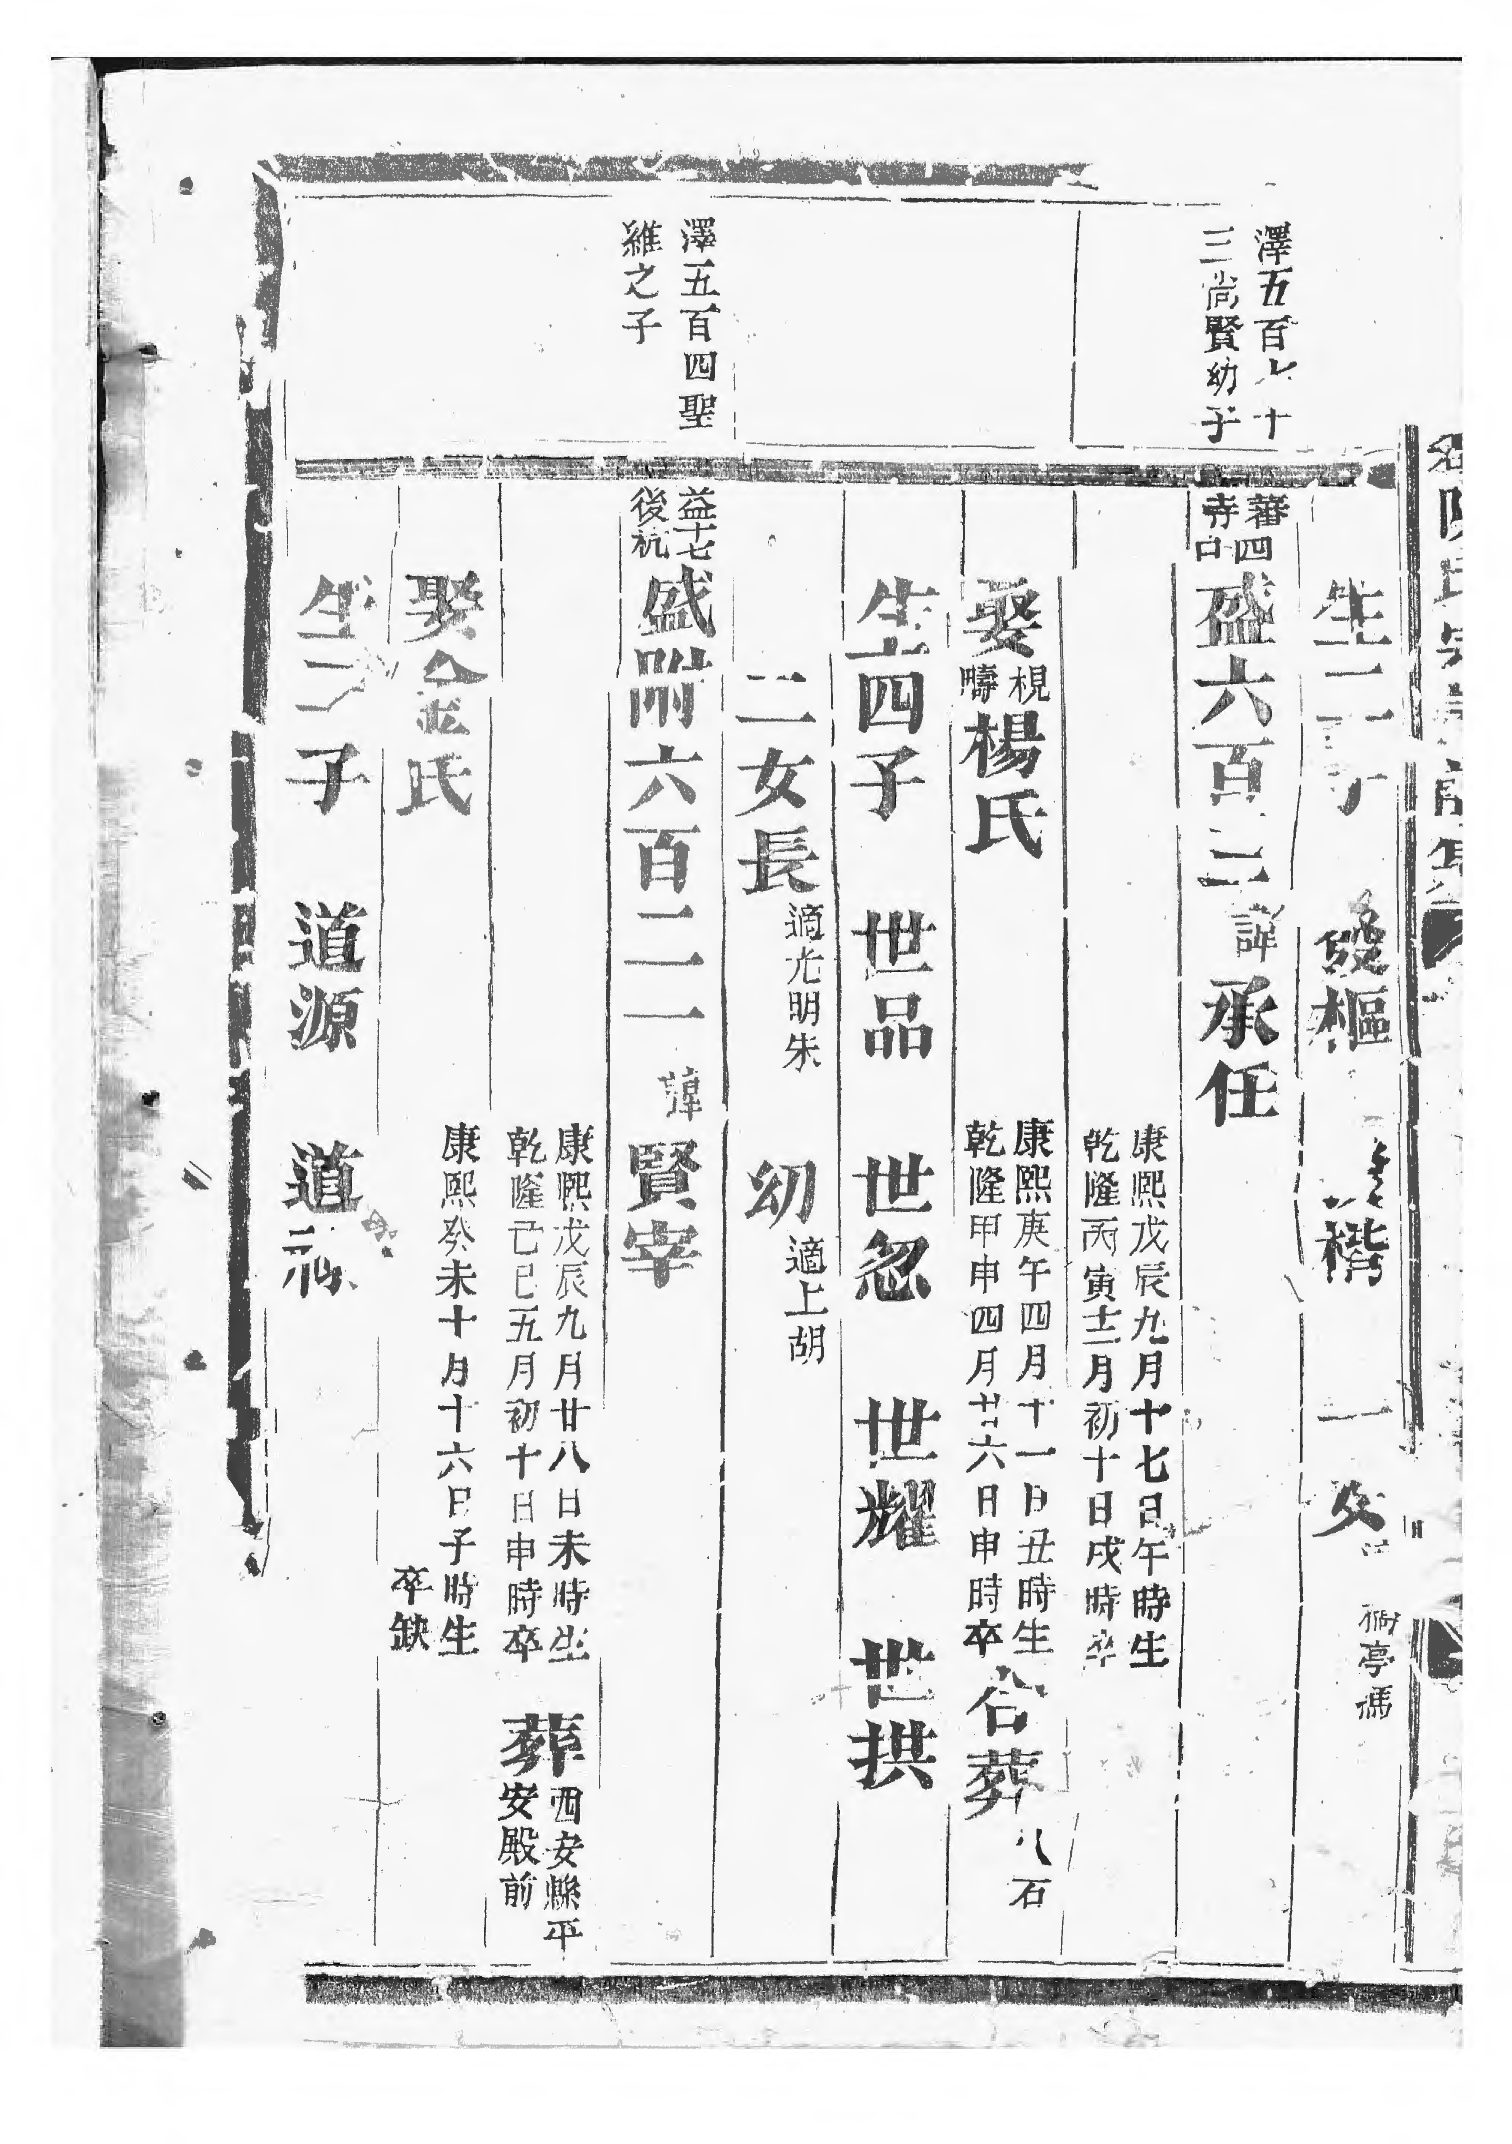 生二子
樞
楷
一女
亭馮
澤五百
十
三尚賢幼子
蕃四
寺口
盛六百二
諱
承任
康熙戊辰九月十七日午時生
乾隆丙寅十二月初十日戌時卒
娶
楊氏
康熙庚午四月十一日丑時生
乾隆甲申四月廿六日申時卒
合葬
八石
生四子 世品 世忽 世耀 世拱
二女長
適尤明朱
幼
適上胡
澤五百四聖
維之子
益十七
後杭
盛附六百二一
諱
賢宰
康熙戊辰九月廿八日未時生
乾隆己巳五月初十日申時卒
葬
西安縣平
安殿前
娶金氏
康熙癸未十月十六日子時生
卒缺
生二子 道源 道